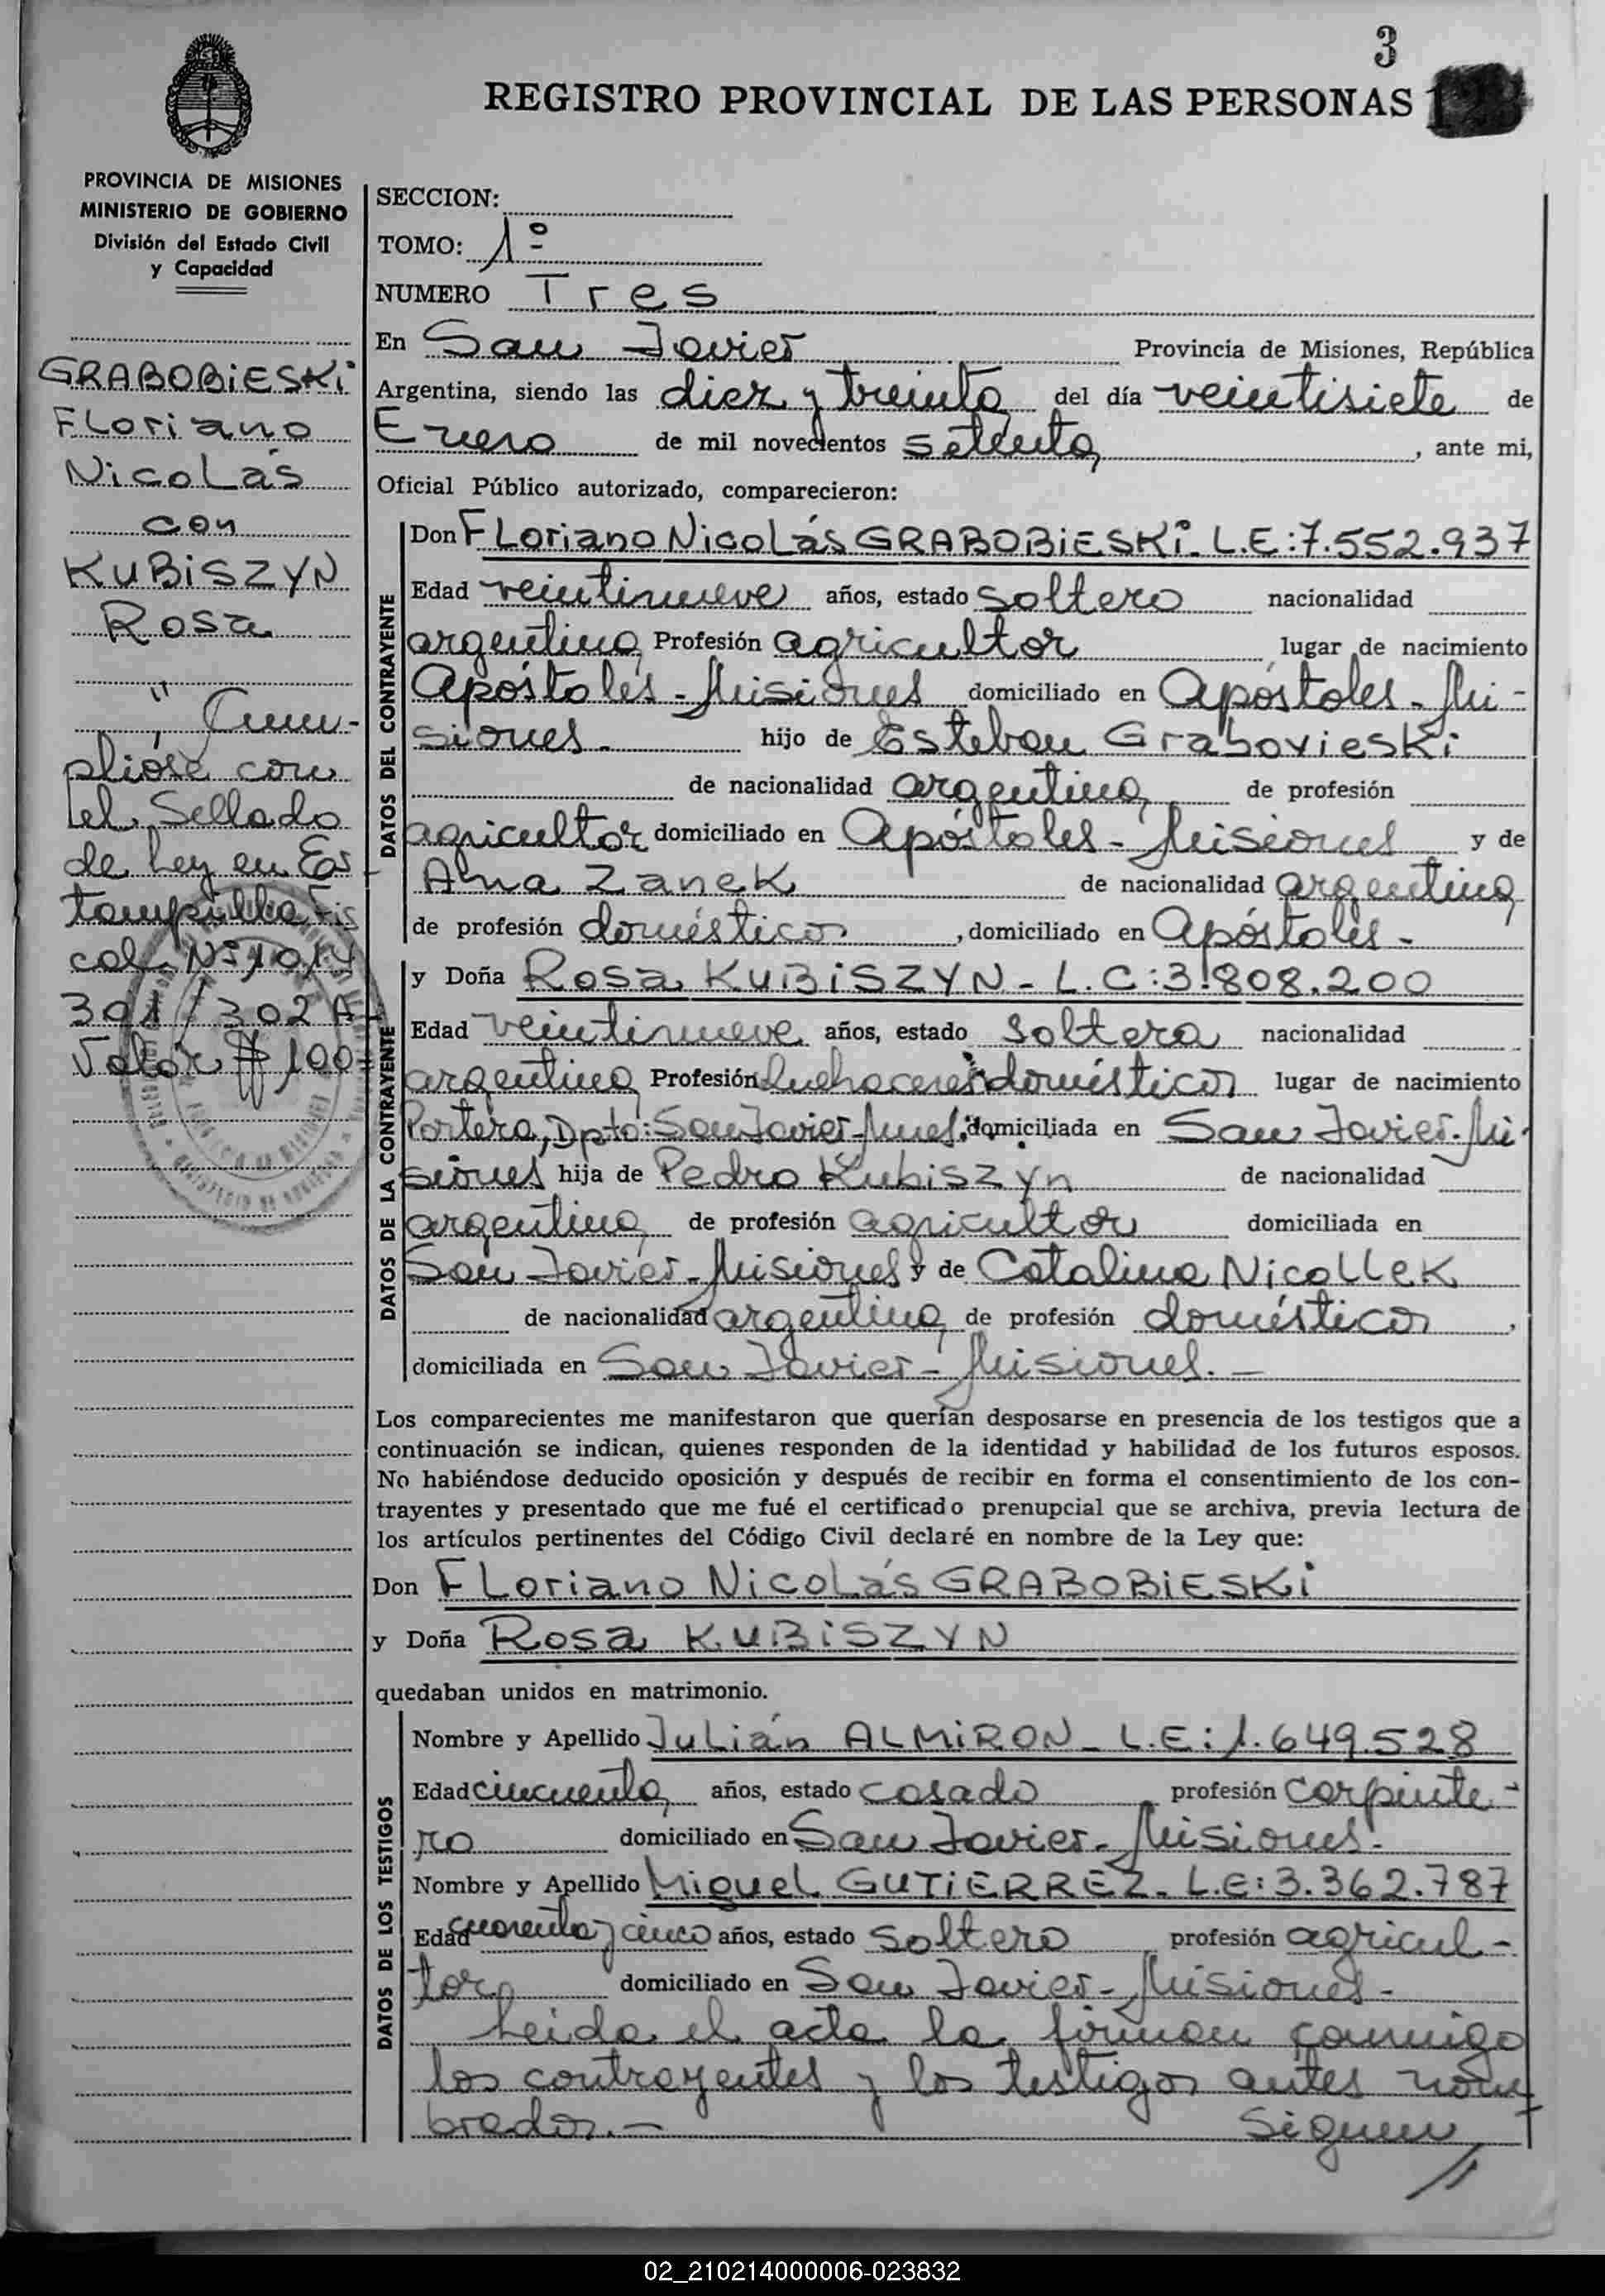 3
REGISTRO PROVINCIAL DE LAS PERSONAS
PROVINCIA DE MISIONES
MINISTERIO DE GOBIERNO
División del Estado Civil
y Capacidad
GRABOBiESKi
FLoriano
NicoLás
con
KUBiSZYN
Rosa
" Cum-
plióse con
el Sellado
de Ley en Es
tampilla Fis
cal Nº 1014
301/302 A
Valor $ 100
SECCION:
TOMO: 1º
NUMERO Tres
En San Javier Provincia de Misiones, República
Argentina, siendo las diez y treinta del día veintisiete de
Enero de mil novecientos setenta, ante mi,
Oficial Público autorizado, comparecieron:
DATOS DEL CONTRAYENTE
Don FLoriano NicoLás GRABOBiESKi. L.E:7.552.937
Edad veintinueve años, estado soltero nacionalidad
argentina Profesión agricultor lugar de nacimiento
Apóstoles - Misiones domiciliado en Apóstoles - Mi-
siones - hijo de Esteban Grabovieski
de nacionalidad argentina de profesión
agricultor domiciliado en Apóstoles - Misiones y de
Ana Zanek de nacionalidad argentina
de profesión doméstica, domiciliado en Apóstoles -
DATOS DE LA CONTRAYENTE
y Doña Rosa KUBiSZYN - L.C:3.808.200
Edad veintinueve años, estado soltera nacionalidad
argentina Profesión Quehaceres domésticos lugar de nacimiento
Portera, Dpto: San Javier-Mnes. domiciliada en San Javier. Mi-
siones hija de Pedro Kubiszyn de nacionalidad
argentina de profesión agricultor domiciliada en
San Javier - Misiones y de Catalina NicoLLeK
de nacionalidad argentina de profesión doméstica,
domiciliada en San Javier - Misiones. -
Los comparecientes me manifestaron que querían desposarse en presencia de los testigos que a
continuación se indican, quienes responden de la identidad y habilidad de los futuros esposos.
No habiéndose deducido oposición y después de recibir en forma el consentimiento de los con-
trayentes y presentado que me fué el certificado prenupcial que se archiva, previa lectura de
los artículos pertinentes del Código Civil declaré en nombre de la Ley que:
Don FLoriano NicoLás GRABOBiESKi
y Doña Rosa KUBiSZYN
quedaban unidos en matrimonio.
DATOS DE LOS TESTIGOS
Nombre y Apellido JuLián ALMiRON - L.E:1.649.528
Edad cincuenta años, estado casado profesión carpinte-
ro domiciliado en San Javier - Misiones -
Nombre y Apellido MigueL GUTiERREZ - L.E:3.362.787
Edad cuarenta y cinco años, estado soltero profesión agricul-
tor domiciliado en San Javier - Misiones -
Leida el acta la firman conmigo
los contrayentes y los testigos antes nom
brados. - Siguen
//
02_210214000006-023832